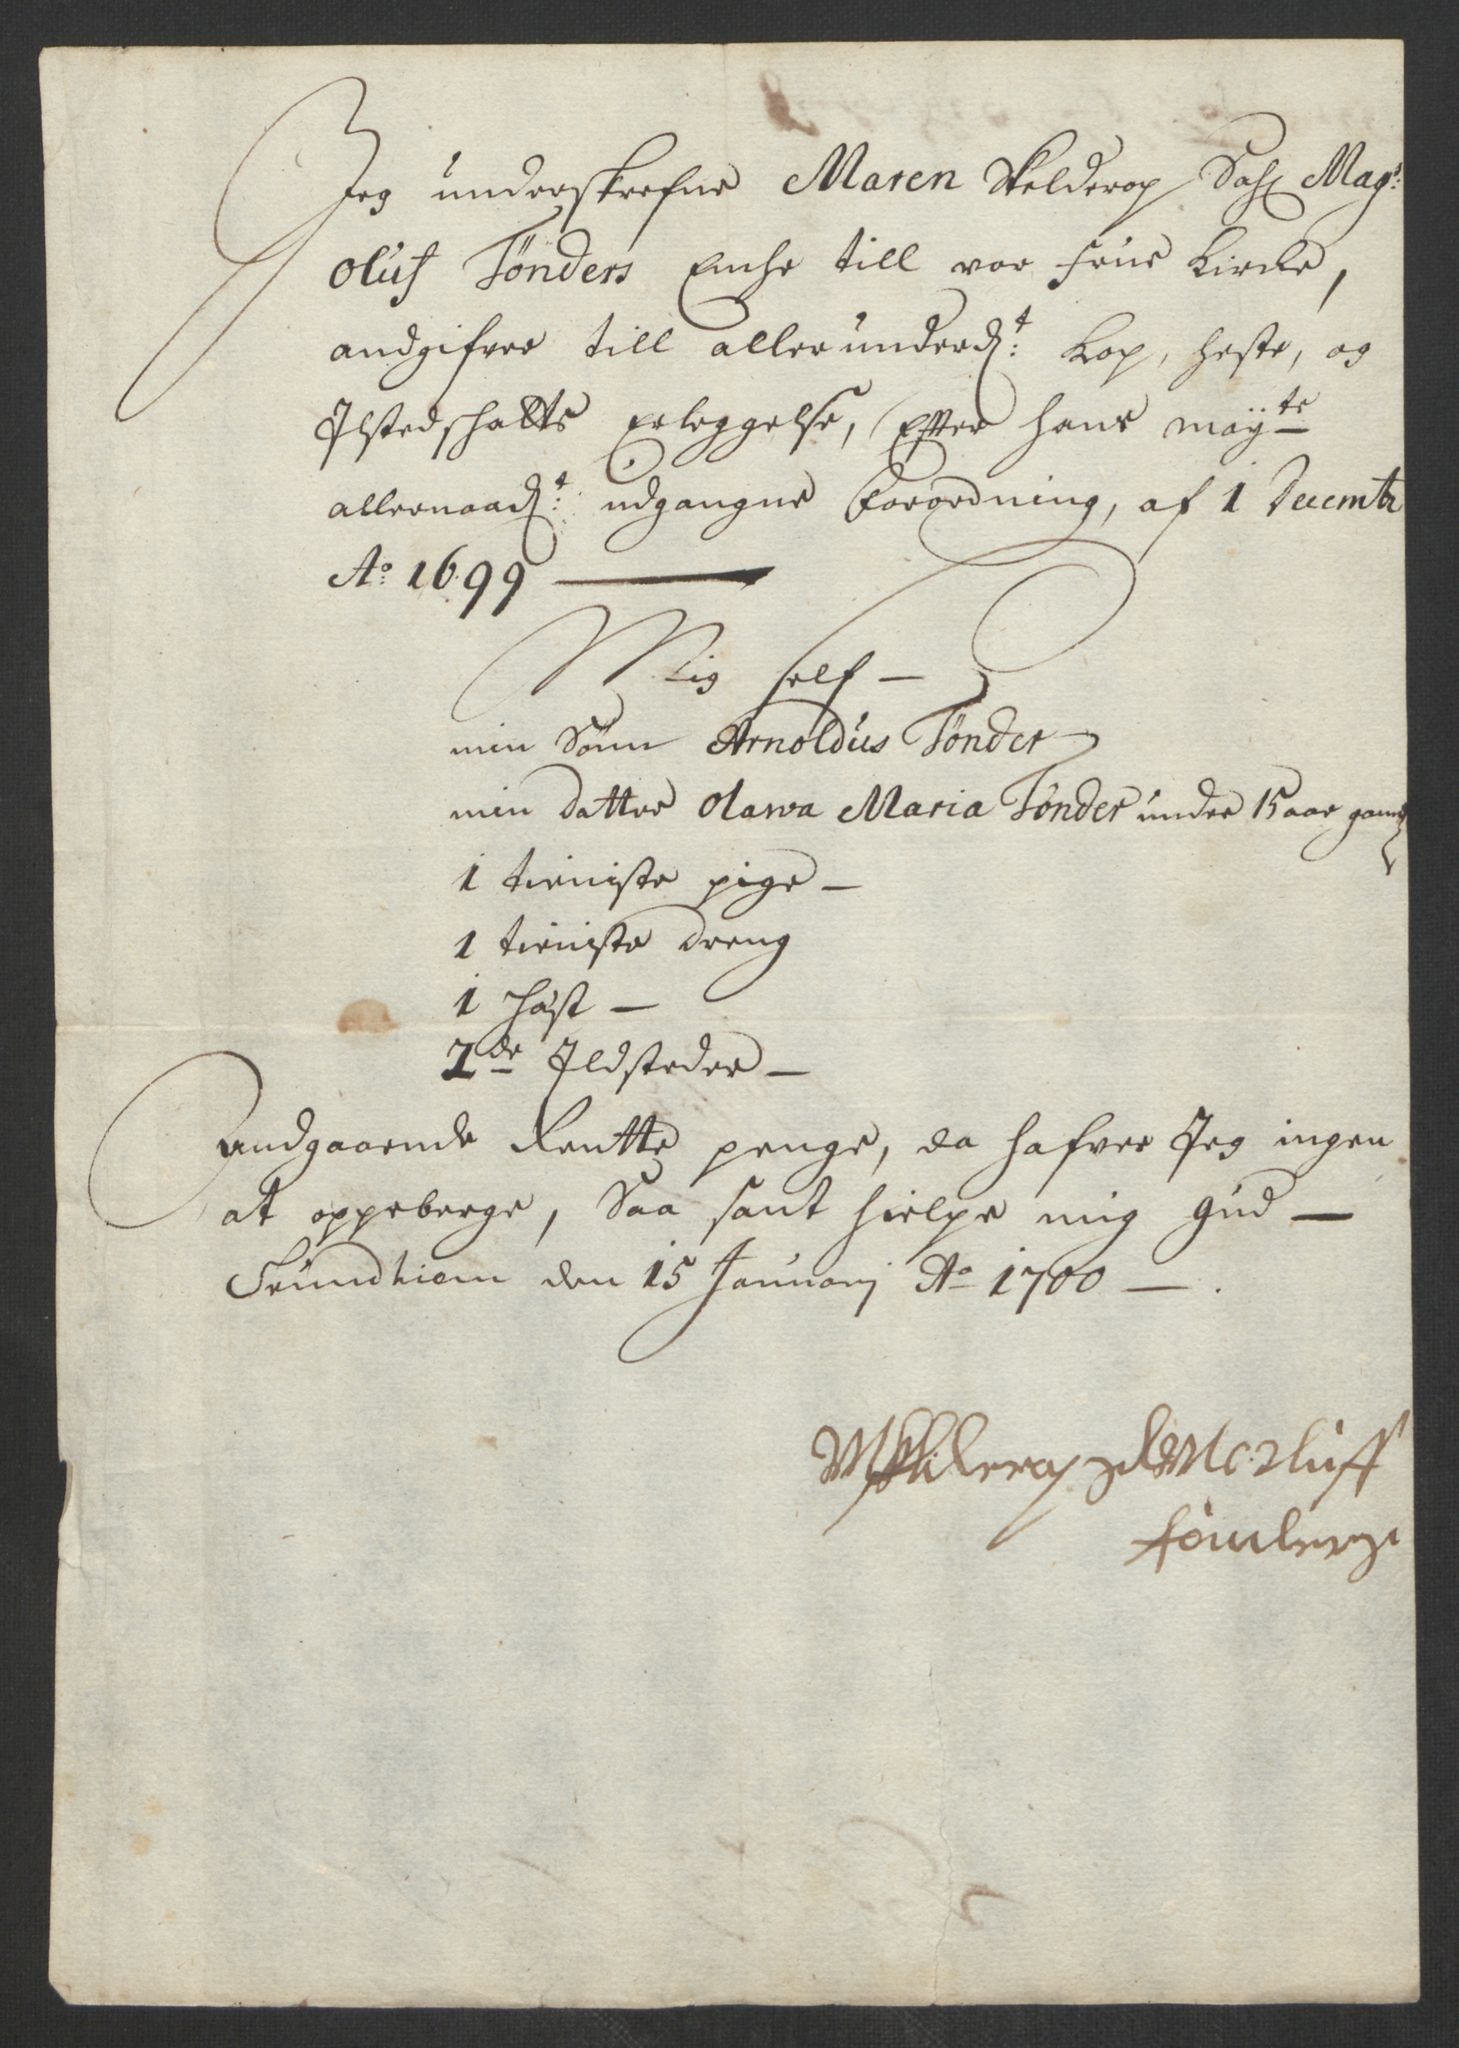 Jeg underskrefne Maren Skelderop Sahl Magr:
Oluf Tönders Encke till vor Frue Kircke,
andgifver till allerunderdt: Kop, heste, og
Ilstedschatts Erleggelse, Efter hans mayts
allernaadt: udgangne Forordning, af 1 Decembr
Ao: 1699
Mig self
min Sönn Arnoldus Tönder
min datter Olava Maria Tönder under 15 aar gaml
1 tieniste pige
1 tieniste dreng
1 häst
2de Ildsteder
Andgaaende Rentte penge, da hafver Jeg ingen
at oppeberge, Saa sant hielpe mig Gud
Trundhiem den 15 Januarj Ao 1700
M Skilderop Oluff
tönders